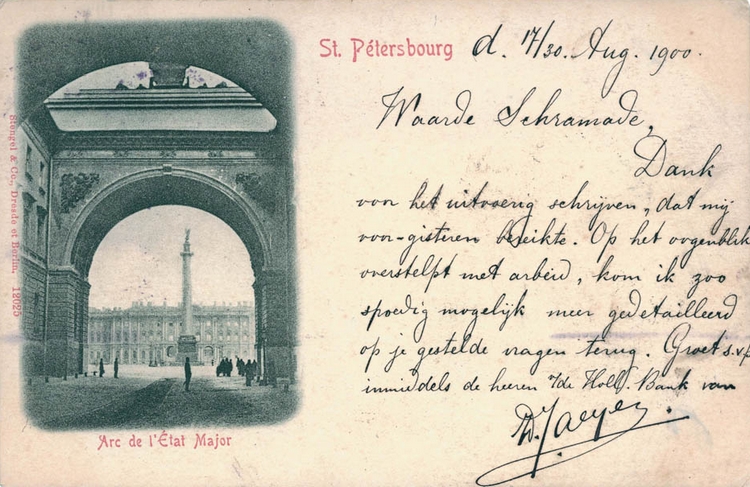 St. Pétersbourg d. 17/30. Aug. 1900.
Waarde Schramade,
Dank
voor het uitvoerig schrijven, dat mij
voor-gisteren bereikte. Op het oogenblik
overstelpt met arbeid, kom ik zoo
spoedig mogelijk meer gedetailleerd
op je gestelde vragen terug. Groet s.v.p
inmiddels de heeren v/de Holl. Bank van
Stengel & Co., Dresde et Berlin. 12025
Arc de l'État Major